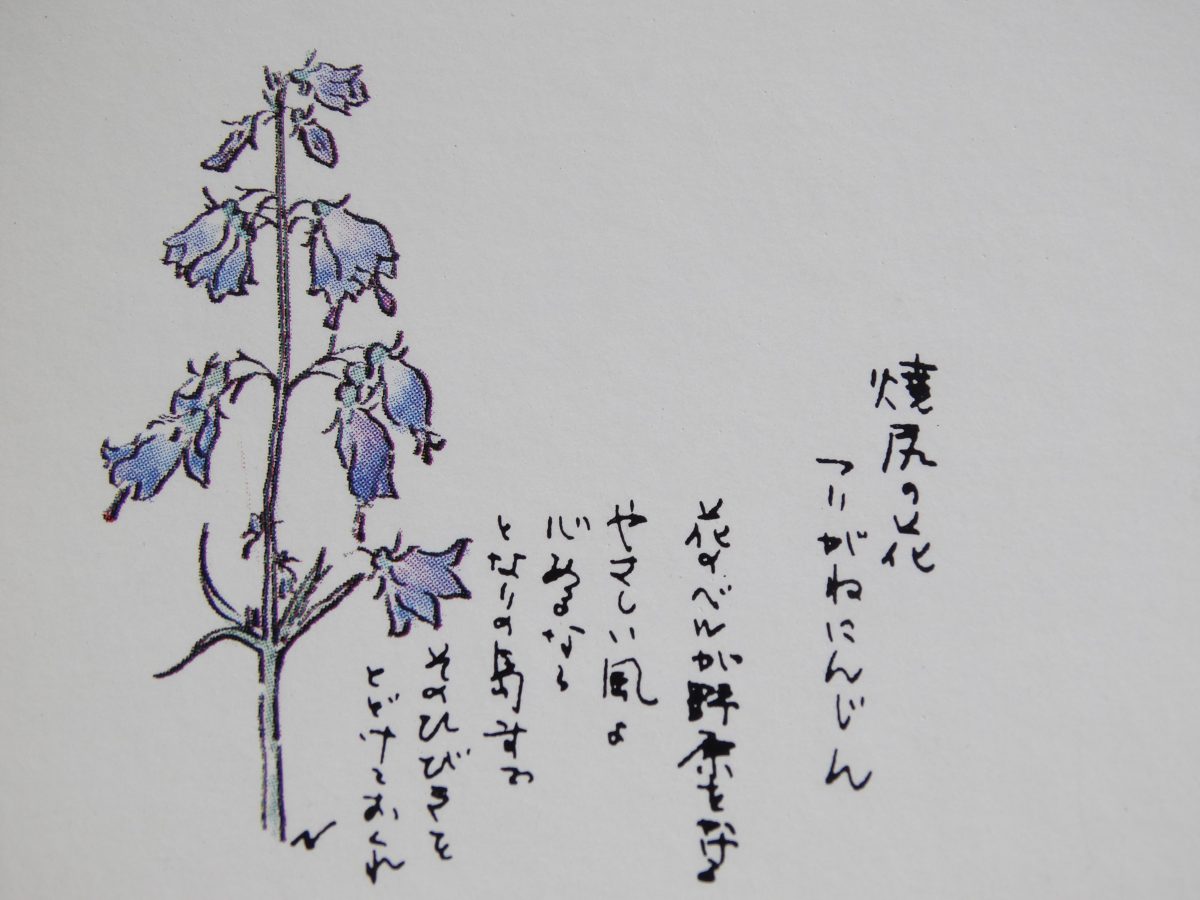 焼尻の花
つりがねにんじん
花のベルが野原をかける
やさしい風よ
心あるなら
となりの島まで
そのひびきを
とどけておくれ